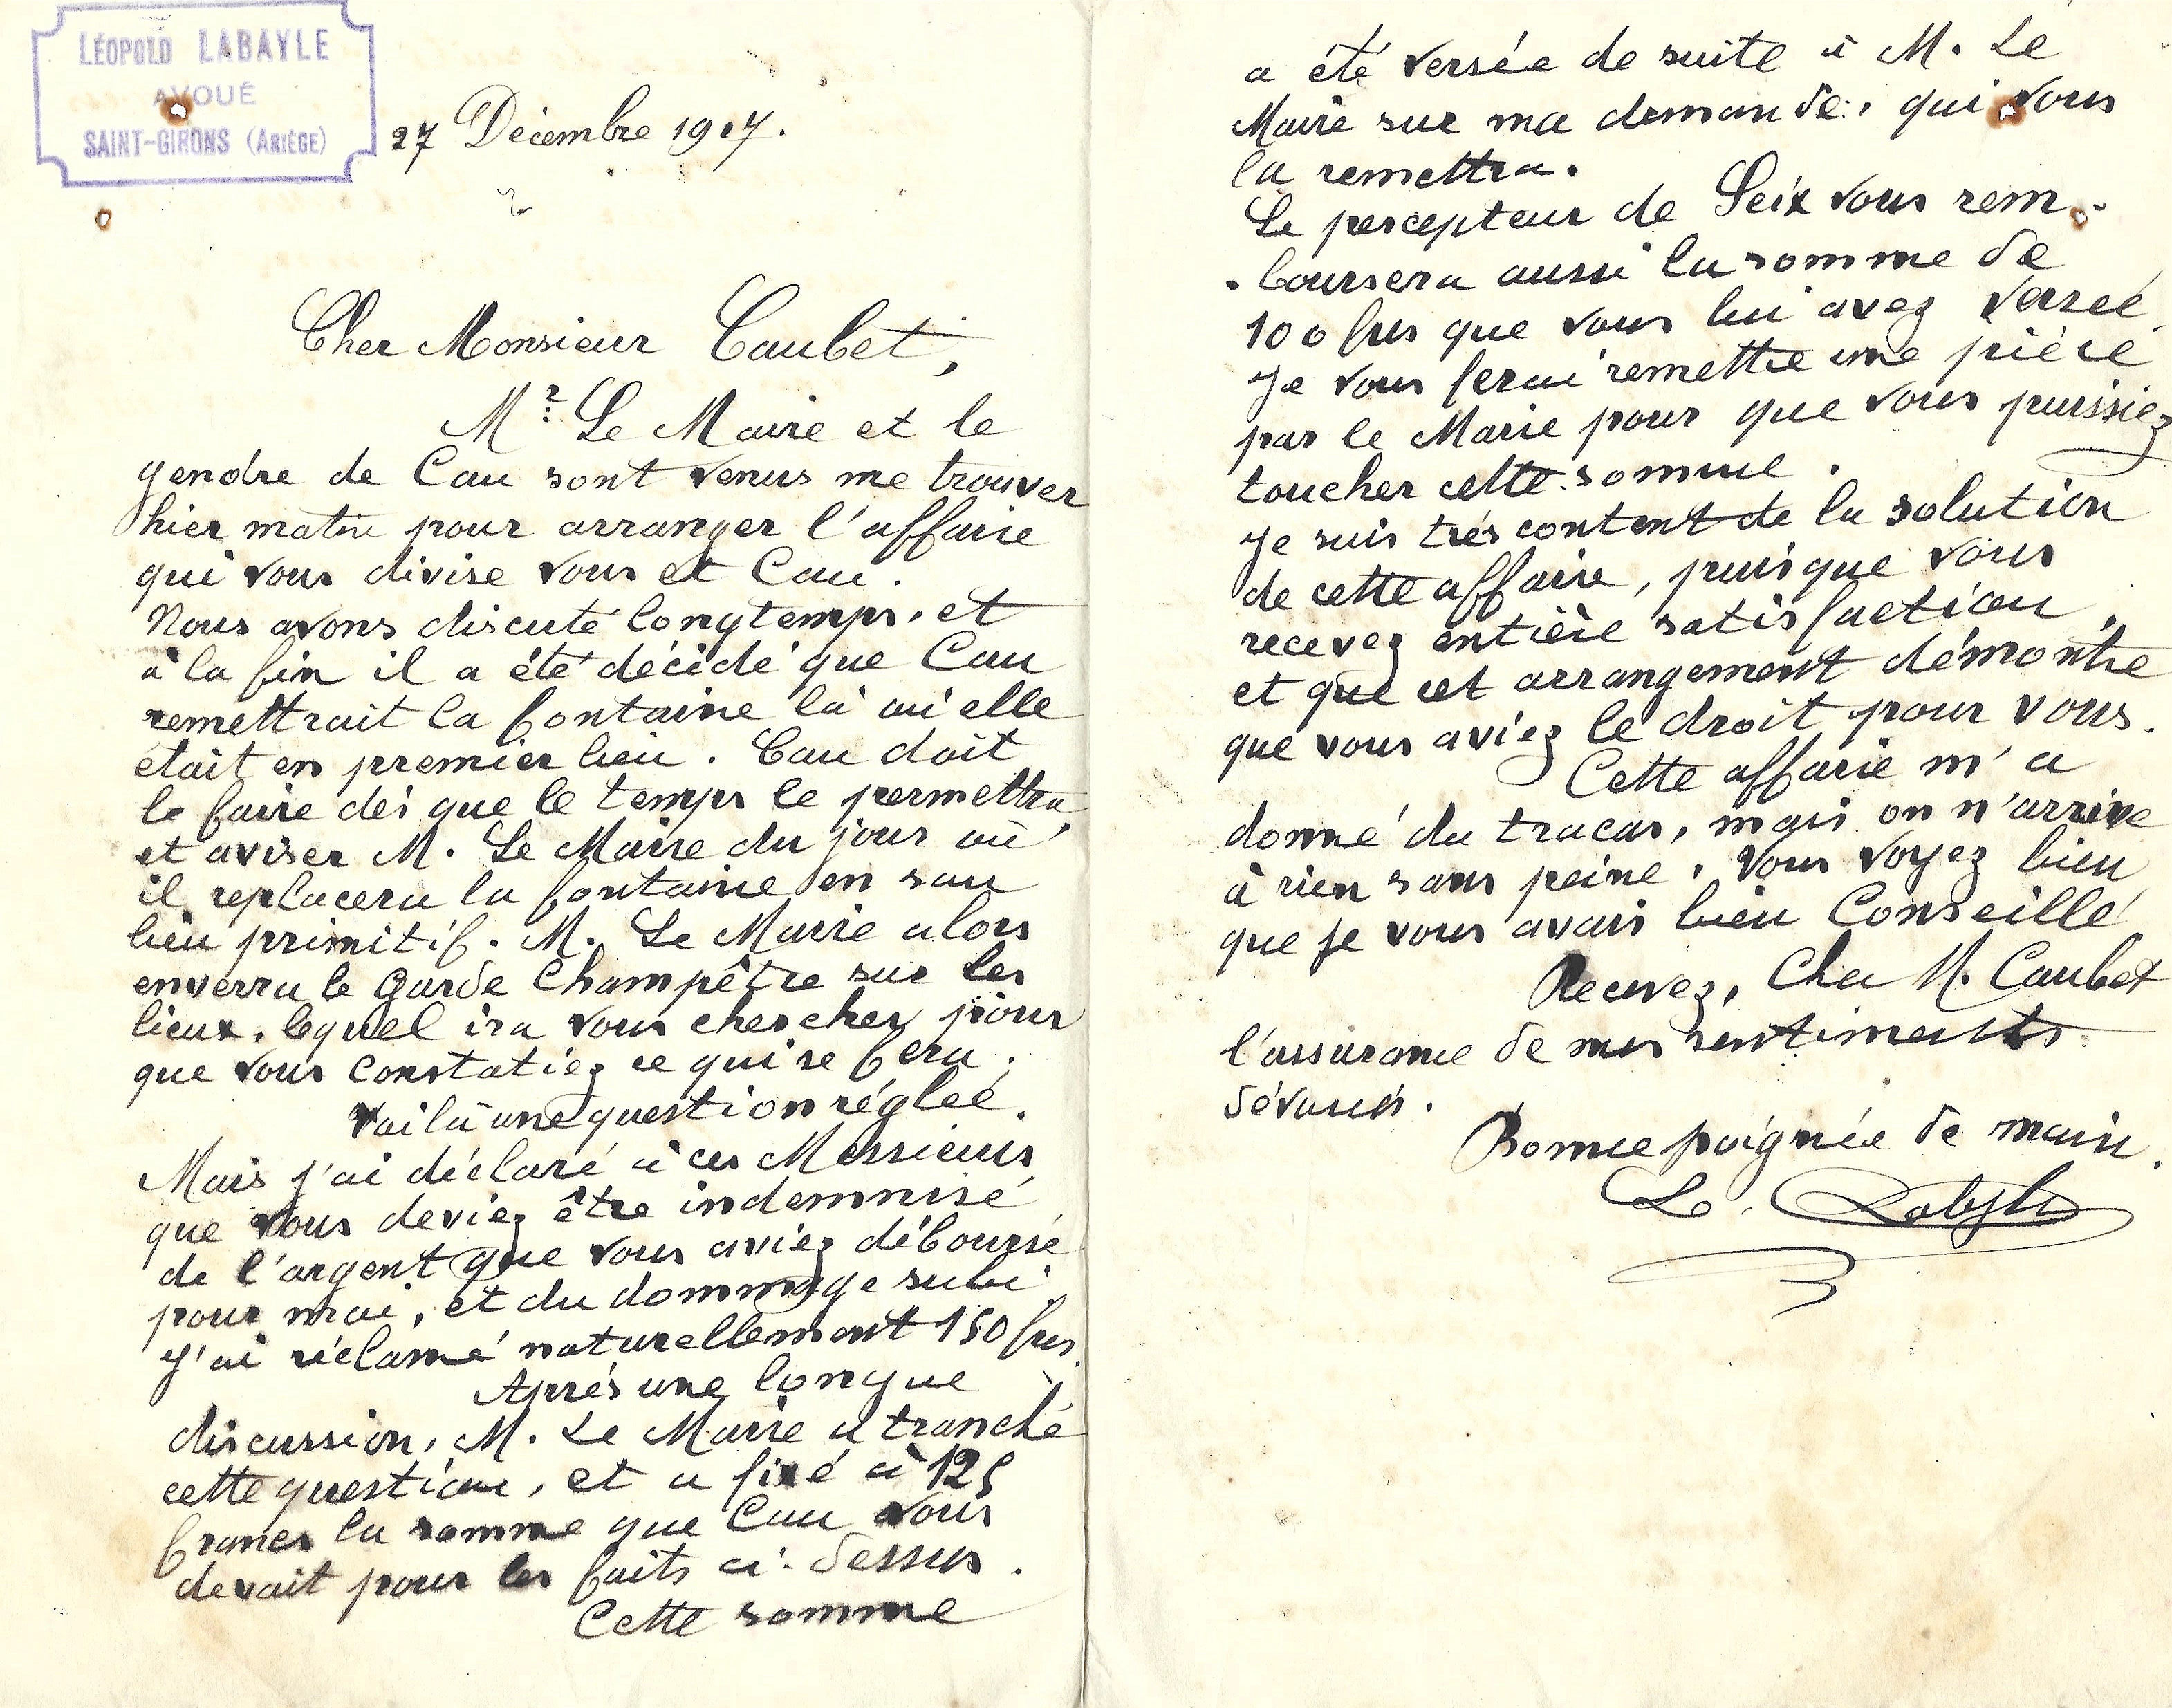 LÉOPOLD LABAYLE
AVOUÉ
SAINT-GIRONS (ARIÈGE)
27 Décembre 1917.
Cher Monsieur Caubet,
Mr Le Maire et le
gendre de Cau sont venus me trouver
hier matin pour arranger l'affaire
qui vous divise vous et Cau.
Nous avons discuté longtemps, et
à la fin il a été décidé que Cau
remettrait la fontaine là où elle
était en premier lieu. Cau doit
le faire dès que le temps le permettra,
et aviser M. Le Maire du jour où
il replacera la fontaine en son
lieu primitif. M. Le Maire alors
enverra le Garde Champêtre sur les
lieux, lequel ira vous chercher pour
que vous constatiez ce qui se fera.
Voilà une question réglée.
Mais j'ai déclaré à ces Messieurs
que vous deviez être indemnisé
de l'argent que vous aviez déboursé
pour moi, et du dommage subi.
J'ai réclamé naturellement 150 frcs.
Après une longue
discussion, M. Le Maire a tranché
cette question, et a fixé à 125
francs la somme que Cau vous
devait pour les faits ci-dessus.
Cette somme
a été versée de suite à M. Le
Maire sur ma demande, qui vous
la remettra.
Le percepteur de Seix vous rem-
-boursera aussi la somme de
100 frcs que vous lui avez versée.
Je vous ferai remettre une pièce
par le Maire pour que vous puissiez
toucher cette somme.
Je suis très content de la solution
de cette affaire, puisque vous
recevez entière satisfaction,
et que cet arrangement démontre
que vous aviez le droit pour vous.
Cette affaire m'a
donné du tracas, mais on n'arrive
à rien sans peine. Vous voyez bien
que je vous avais bien Conseillé
Recevez, Cher M. Caubet
l'assurance de mes sentiments
dévoués.
Bonne poignée de main.
L. Labayle